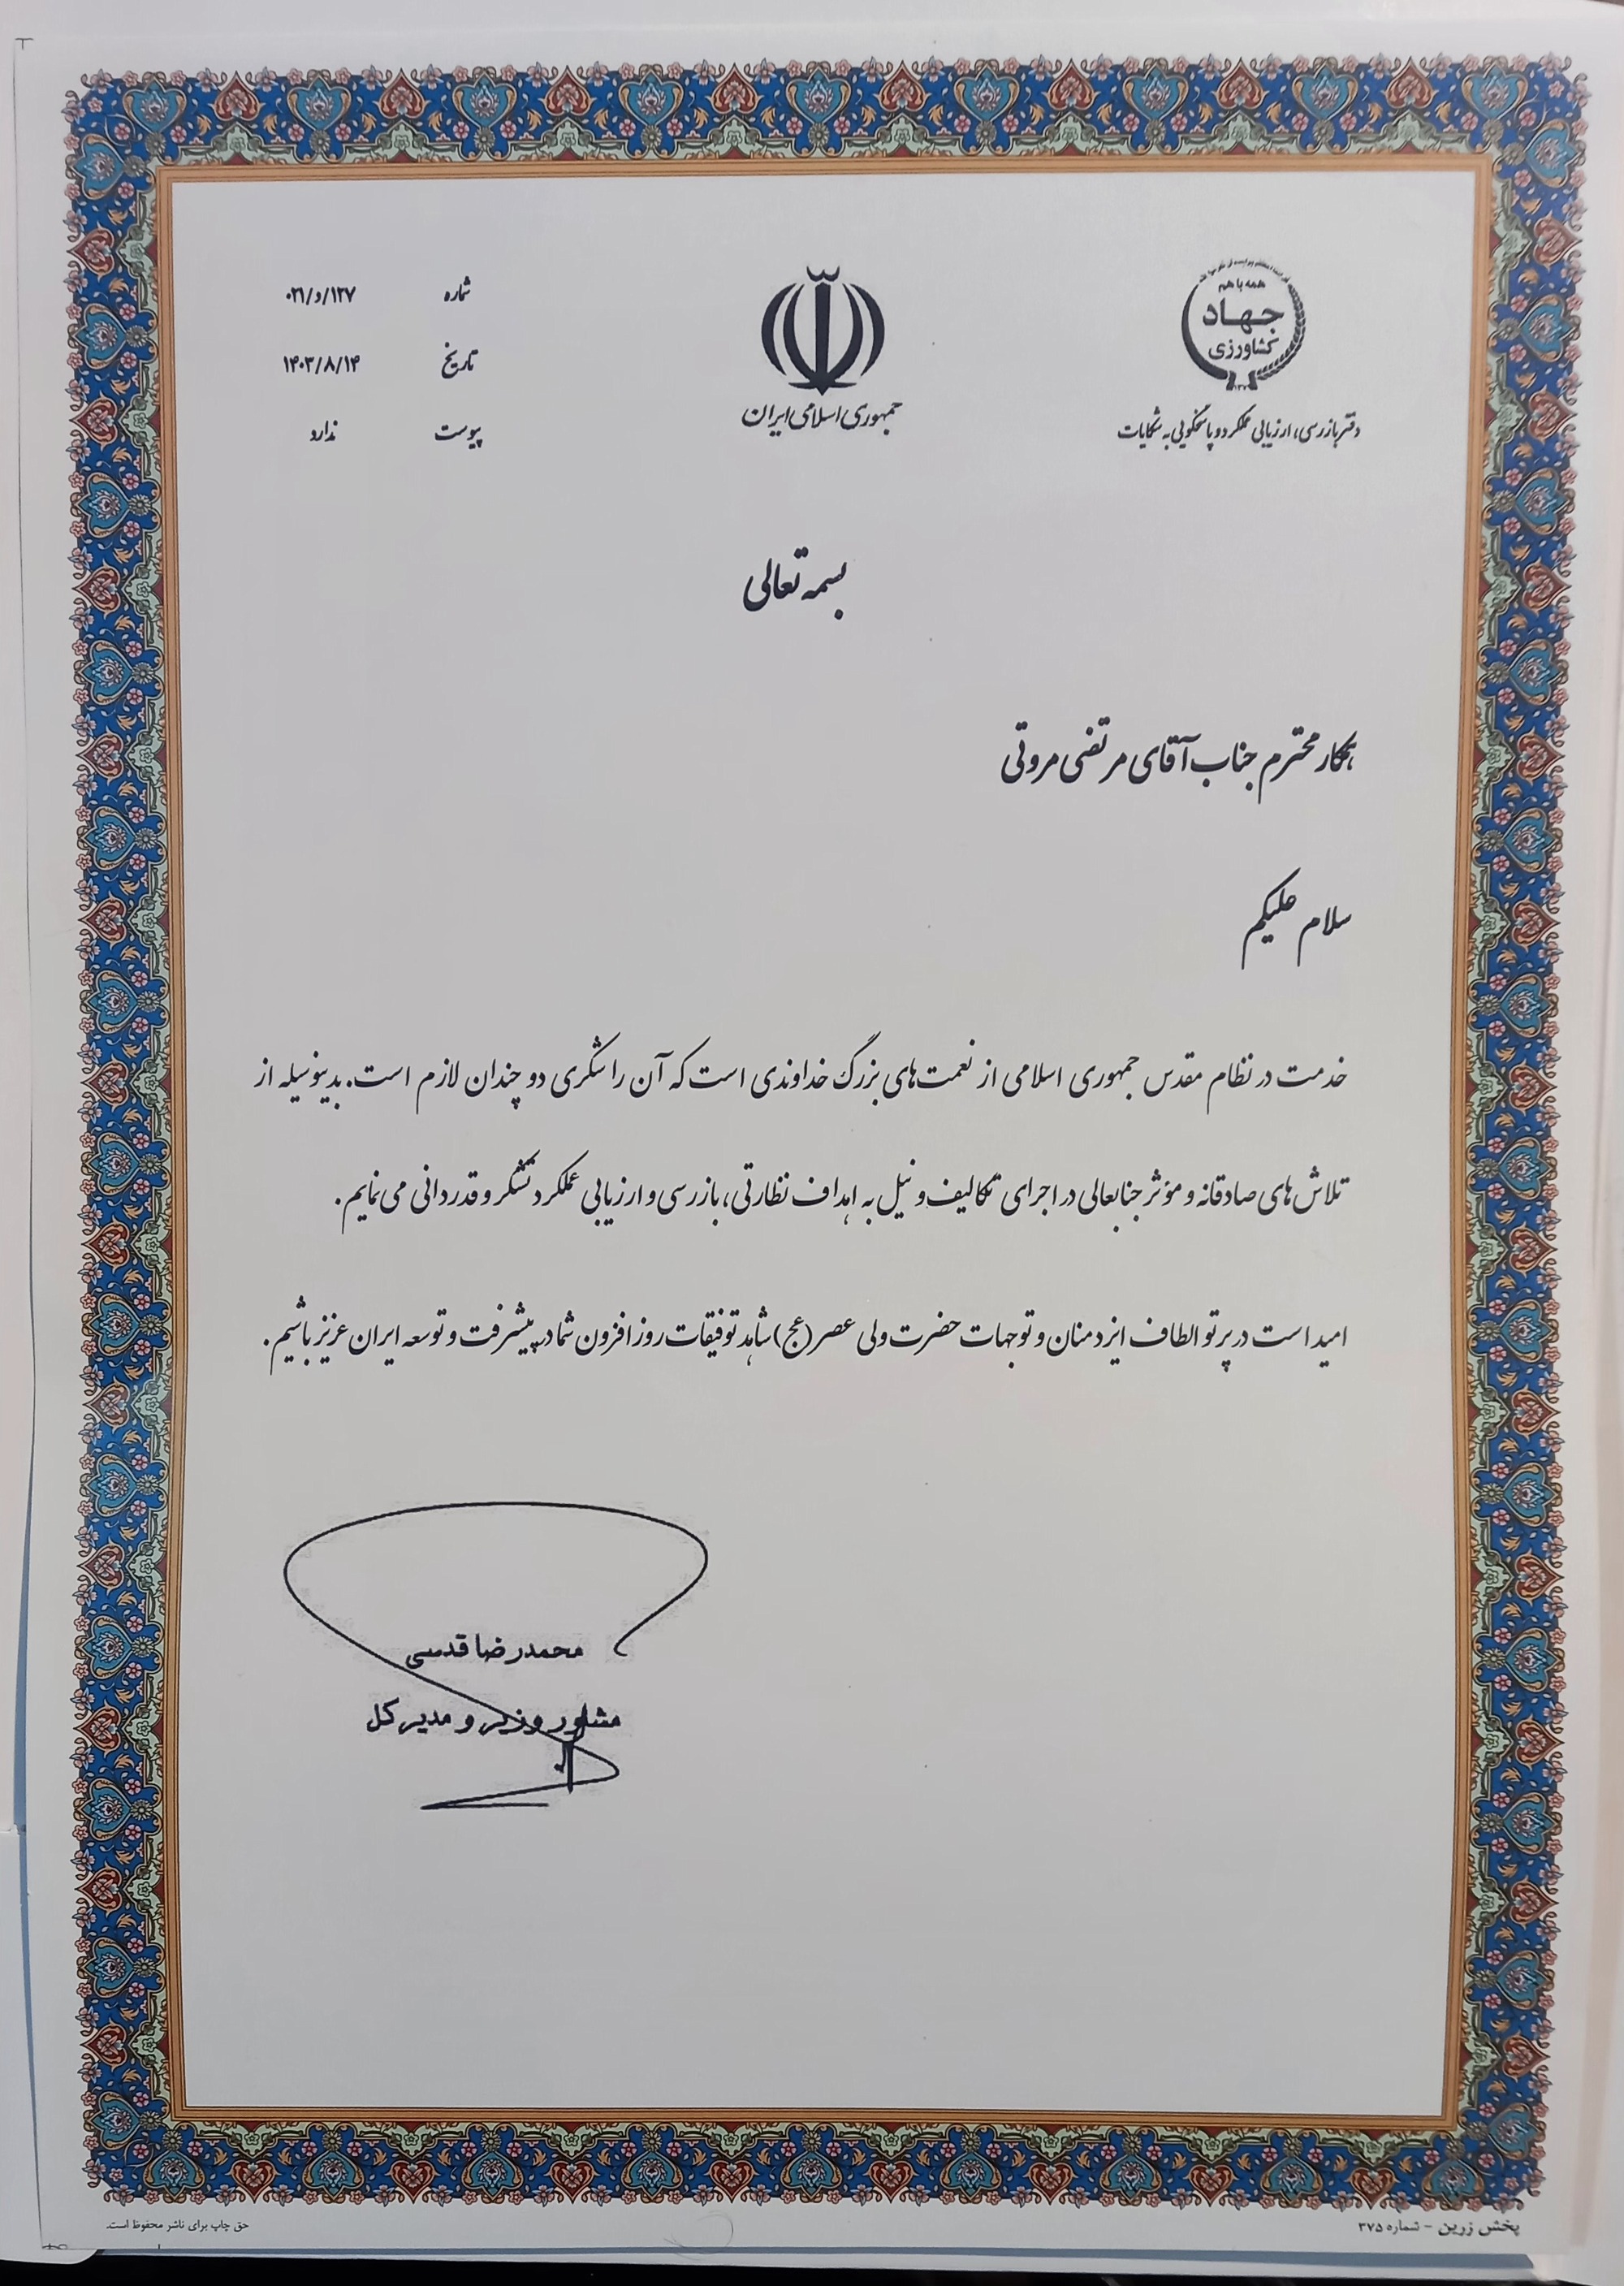 همه با هم
جهاد
کشاورزی
دفتر بازرسی، ارزیابی عملکرد و پاسخگویی به شکایات
جمهوری اسلامی ایران
شماره ۰۲۱/و/۱۲۷
تاریخ ۱۴۰۳/۸/۱۴
پیوست ندارد
بسمه تعالی
همکار محترم جناب آقای مرتضی مروتی
سلام علیکم
خدمت در نظام مقدس جمهوری اسلامی از نعمت‌های بزرگ خداوندی است که آن را شکری دو چندان لازم است. بدینوسیله از
تلاش‌های صادقانه و مؤثر جنابعالی در اجرای تکالیف و نیل به اهداف نظارتی، بازرسی و ارزیابی عملکرد تشکر و قدردانی می نمایم.
امید است در پرتو الطاف ایزد منان و توجهات حضرت ولی عصر (عج) شاهد توفیقات روز افزون شما در پیشرفت و توسعه ایران عزیز باشیم.
محمدرضا قدسی
مشاور وزیر و مدیر کل
پخش زرین - شماره ۳۷۵
حق چاپ برای ناشر محفوظ است.